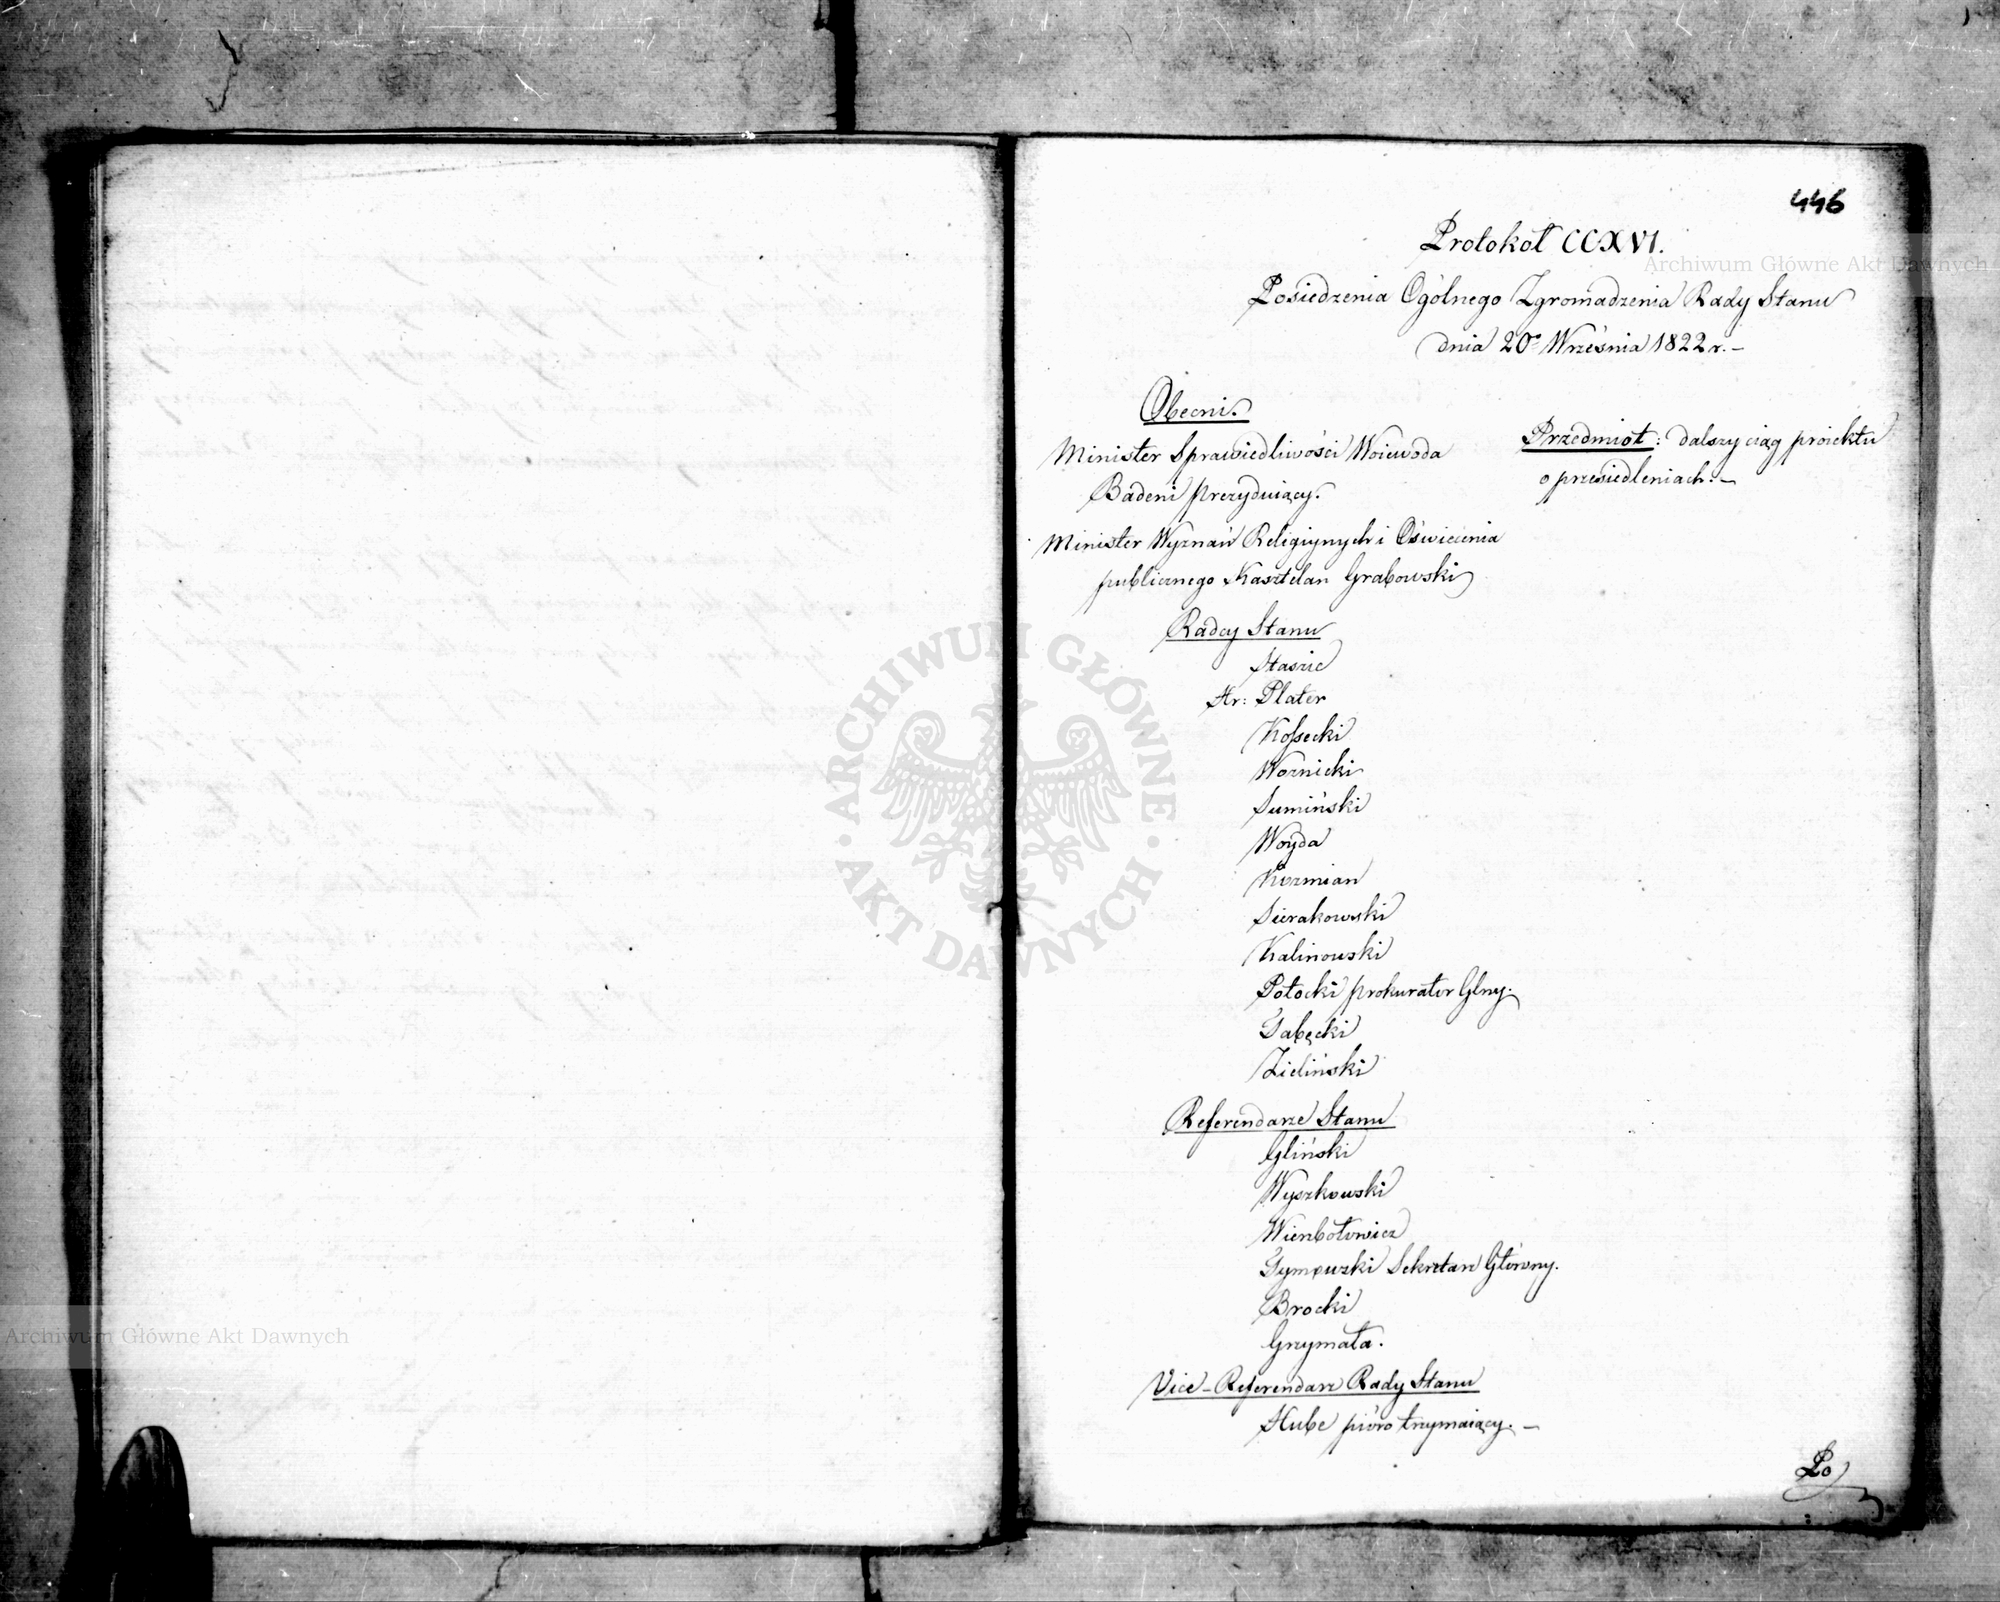 446
Protokoł CCXVI.
Posiedzenia Ogólnego Zgromadzenia Rady Stanu
dnia 20º Września 1822 r. –
Obecni.
Minister Sprawiedliwości Woiewoda
Badeni prezyduiący.
Minister Wyznań Religiynych i Oświecenia
publicznego Kasztelan Grabowski
Radcy Stanu
Staszic
Hr: Plater
Kossecki
Woznicki
Sumiński
Woyda
Kozmian
Sierakowski
Kalinowski
Potocki prokurator Glny.
Tabęcki
Zieliński
Referendarze Stanu
Gliński
Wyszkowski
Wienbołowicz
Tymowski Sekretarz Główny.
Brocki
Grzymała.
Vice-Referendarz Rady Stanu
Hube pióro trzymaiący. –
Przedmiot: dalszy ciąg proiektu
o przesiedleniach. –
Po
Archiwum Główne Akt Dawnych
ARCHIWUM GŁÓWNE · AKT DAWNYCH ·
Archiwum Główne Akt Dawnych